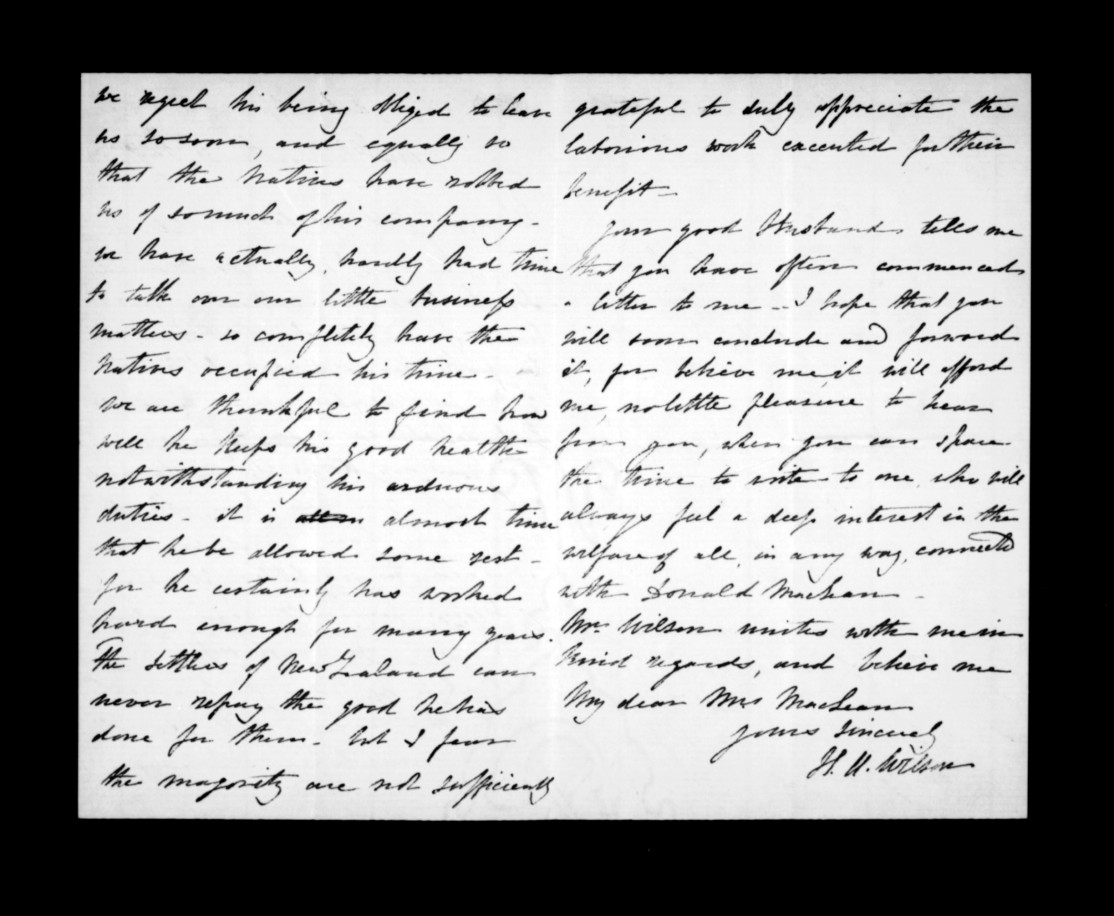 we regret his being obliged to leave
us so soon, and equally so
that the Natives have robbed
us of so much of his company -
we have actually, hardly had time
to talk over our little business
matters - so completely have the
Natives occupied his time -
We are thankful to find how
well he keeps his good health
notwithstanding his arduous
duties - it is almost time
that he be allowed some rest -
for he certainly has worked
hard enough for many years.
The settlers of New Zealand can
never repay the good he has
done for them - but I fear
the majority are not sufficiently
grateful to duly appreciate the
laborious work executed for their
benefit -
Your good Husband tells me
that you have often commenced
a letter to me - I hope that you
will soon conclude and forward
it, for believe me, it will afford
me, no little pleasure to hear
from you, when you can spare
the time to write to one, who will
always feel a deep interest in the
welfare of all, in any way, connected
with Donald MacLean -
Mr. Wilson unites with me in
kind regards, and believe me
My dear Mrs MacLean
Yours Sincerely
H. A. Wilson